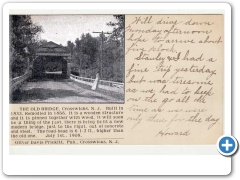 THE OLD BRIDGE, Crosswicks, N. J. Built in
1833, demolished in 1908. It is a wooden structure
and it is pinned together with wood. It will soon
be a thing of the past, there is being built a new
modern bridge, just to the right, out of concrete
and steel. The flood beat is 6 1-2 ft. higher than
the old one. July 1st, 1908.
Oliver Davis-Priestly, Pub., Crosswicks, N. J.
Will drive down
Sunday afternoon
hope to arrive about
five o'clock.
Stanley and I had a
fine trip yesterday
but was tiresome
as we had to keep
on the go all the
time as we were
only there for the day
Howard